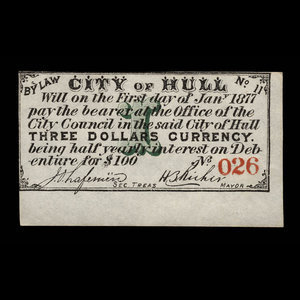 BY LAW CITY OF HULL No 11
Will on the First day of Jany 1877
pay the bearer at the Office of the
City Council in the said City of Hull
THREE DOLLARS CURRENCY
being half yearly interest on Deb-
enture for $100 No 026
SEC. TREAS MAYOR